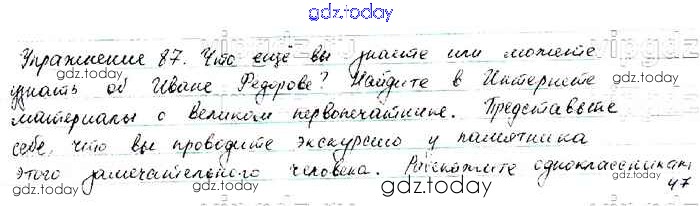 gdz.today
Упражнение 87. Что ещё вы знаете или можете
узнать об Иване Федорове? Найдите в Интернете
материалы о великом первопечатнике. Представьте
себе, что вы проводите экскурсию у памятника
этого замечательного человека. Расскажите одноклассникам
47
vipgdz
gdz.today
gdz.today
gdz.today
gdz.today
gdz.today
gdz.today
gdz.today
gdz.today